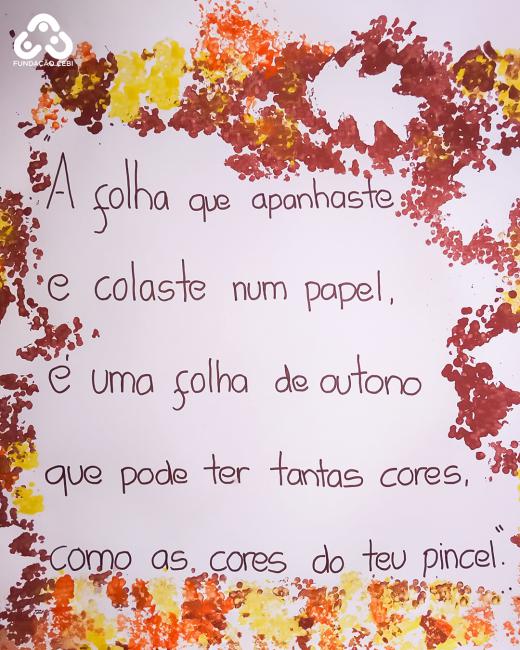 FUNDAÇÃO CEBI
A folha que apanhaste
e colaste num papel,
é uma folha de outono
que pode ter tantas cores,
como as cores do teu pincel."